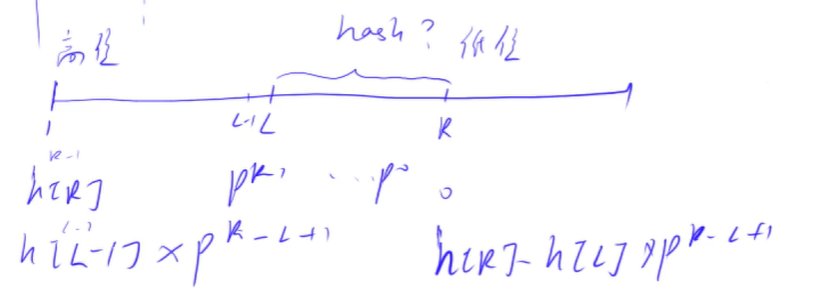 hash?
高位 低位
1 L-1 L R
R-1
h[R] p^{R-1} ... p^0 0
h[L-1] × p^{R-L+1} h[R]-h[L] × p^{R-L+1}